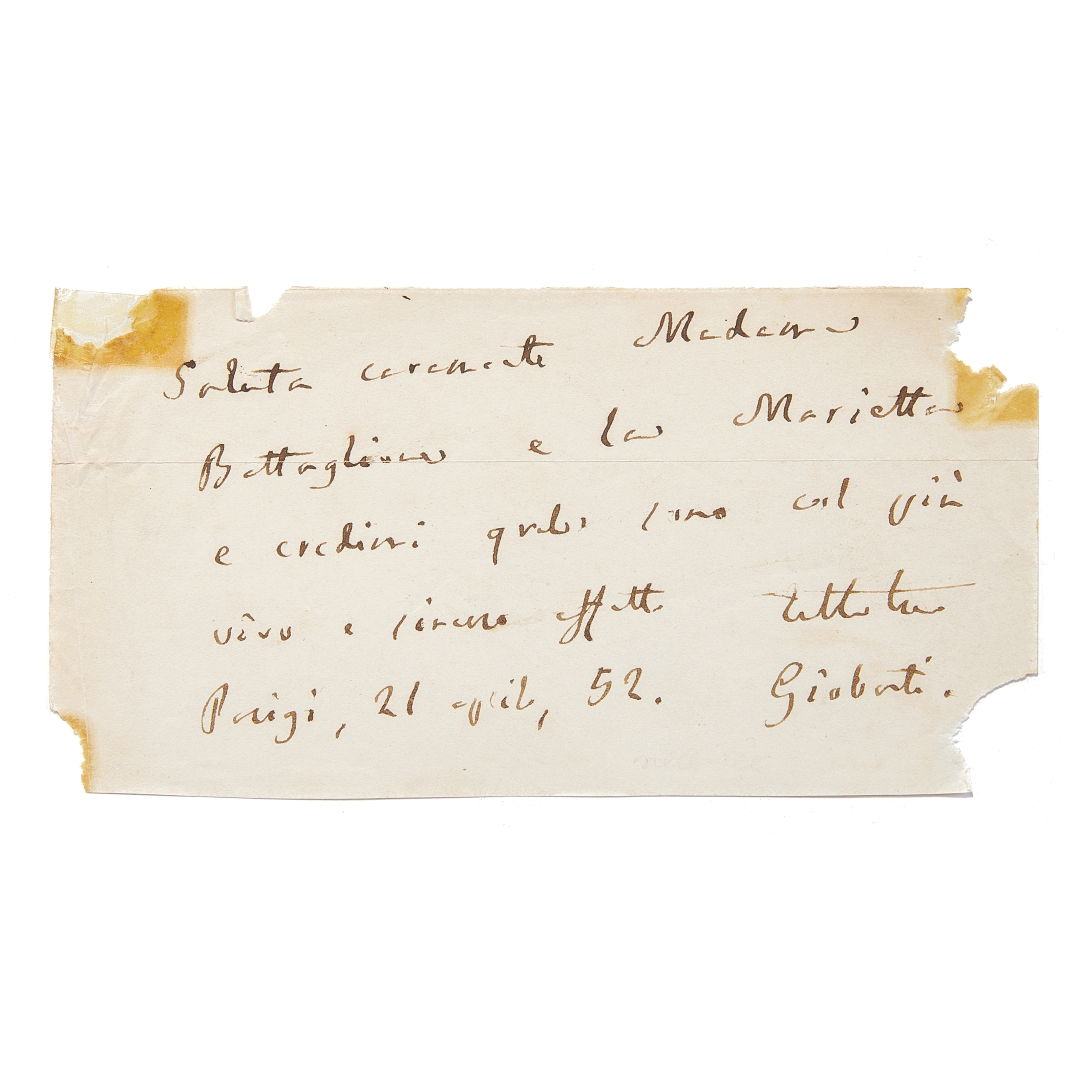 Saluta caramente Madama
Battaglione e la Marietta
e credimi quale sono col più
vivo e sincero affetto tutto tuo
Parigi, 21 aprile, 52. Gioberti.